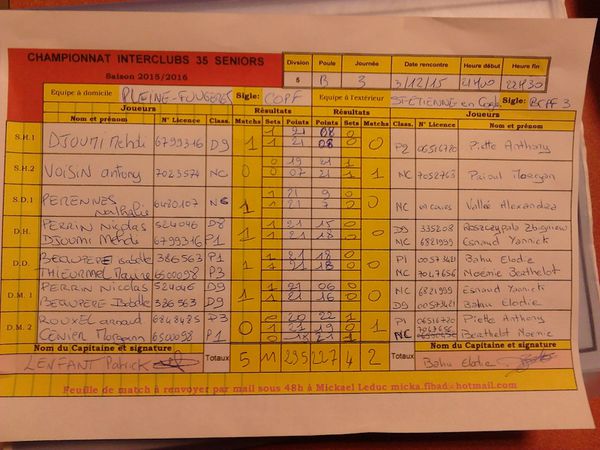 CHAMPIONNAT INTERCLUBS 35 SENIORS
Saison 2015/2016
Division Poule Journée Date rencontre Heure début Heure fin
5 B 3 3/12/15 21H00 22H30
Equipe à domicile PLEINE-FOUGERES Sigle: COPF Equipe à l'extérieur ST ETIENNE en Sigle: BCPF 3
Joueurs Résultats Résultats Joueurs
Nom et prénom N° Licence Class. Matchs Sets Points Points Sets Matchs Class. N° Licence Nom et prénom
S.H.1 DJOUMI Mehdi 6799316 D9 1 1 21 08 0 0 P2 06516720 Piette Anthony
1 21 08 0
S.H.2 VOISIN antony 7023574 NC 0 0 19 21 1 1 NC 7052763 Morgan
0 07 21 1
S.D.1 PERENNES Nathalie 6420107 NC 1 1 21 9 0 0 NC en cours Vallée Alexandra
1 21 7 0
D.H. PERRIN Nicolas 524046 D8 1 1 21 15 0 0 D9 335208 Zbigniew
DJoumi Mehdi 6799316 P1 1 21 18 0 NC 6821999 Esnaud Yannick
D.D. BEAUPERE Isabelle 386563 P1 1 1 21 18 0 0 P1 00573421 Bahu Elodie
THIEURMEL 6500098 P3 1 21 18 0 NC 7047656 Noemie Berthelot
D.M. 1 PERRIN Nicolas 524046 D9 1 1 21 06 0 0 NC 6821999 Esnaud Yannick
BEAUPERE Isabelle 386563 D9 1 21 16 0 D9 00573421 Bahu Elodie
D.M. 2 ROUXEL arnaud 6848485 P3 0 0 20 22 1 1 P1 06516720 Piette Anthony
6500098 P1 1 21 19 0 NC 7047656 Berthelot Noemie
0 21 1
Nom du Capitaine et signature Totaux 5 11 295 227 4 2 Totaux Nom du Capitaine et signature
LENFANT Patrick Bahu Elodie
Feuille de match à renvoyer par mail sous 48h à Mickael Leduc micka.fibad@hotmail.com